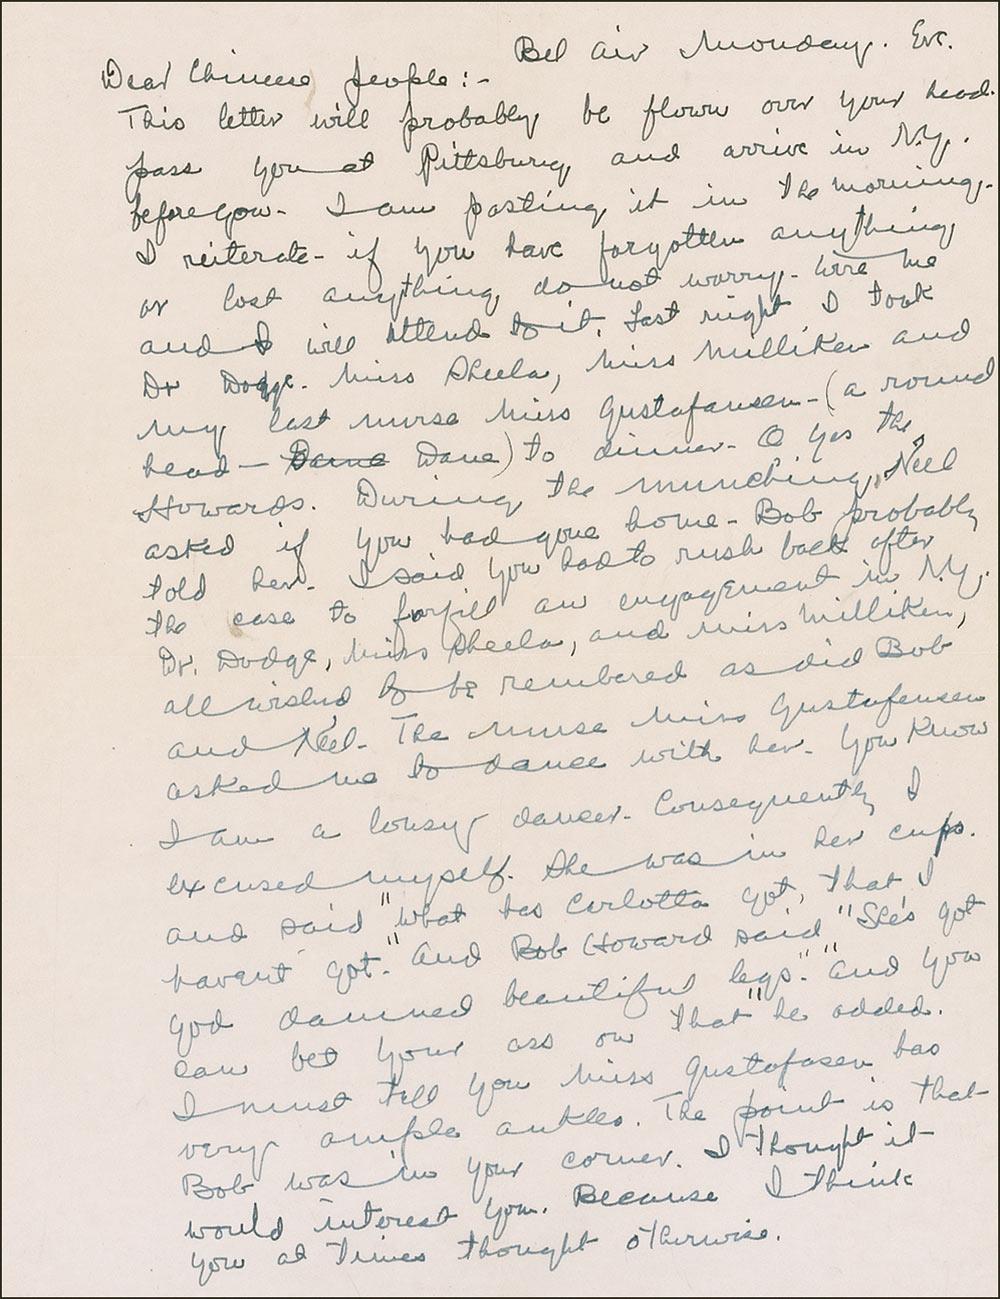 Bel Air Monday. Eve.
Dear Chinese people:-
This letter will probably be flown over your head.
pass you at Pittsburg and arrive in N.Y.
before you- I am posting it in the morning.
I reiterate- if you have forgotten anything
or lost anything do not worry- wire me
and I will attend to it. Last night I took
Dr Dodge. Miss Sheela, Miss Milliken and
my last nurse Miss Gustafansen-(a round
head — Dane Dane) to dinner- O yes the
Howards. During the munching, Neel
asked if you had gone home- Bob probably
told her- I said you had to rush back after
the case to forfill an engagement in N.Y.
Dr. Dodge, Miss Sheela, and Miss Milliken,
all wished to be rembered as did Bob
and Neel- The nurse Miss Gustafensen
asked me to dance with her- You know
I am a lousy dancer- Consequently I
excused myself. She was in her cups.
and said "what has Carlotta got, that I
havent got." And Bob Howard said "She's got
god damned beautiful legs." "and you
can bet your ass on that" he added.
I must tell you Miss Gustafasen has
very ample ankles. The point is that
Bob was in your corner. I thought it
would interest you. Because I think
you at times thought otherwise.